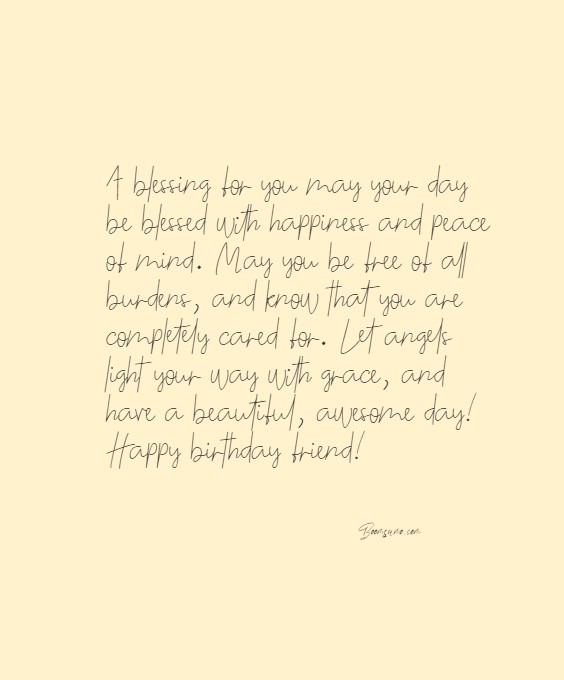 A blessing for you may your day
be blessed with happiness and peace
of mind. May you be free of all
burdens, and know that you are
completely cared for. Let angels
light your way with grace, and
have a beautiful, awesome day!
Happy birthday friend!
Boomsumo.com